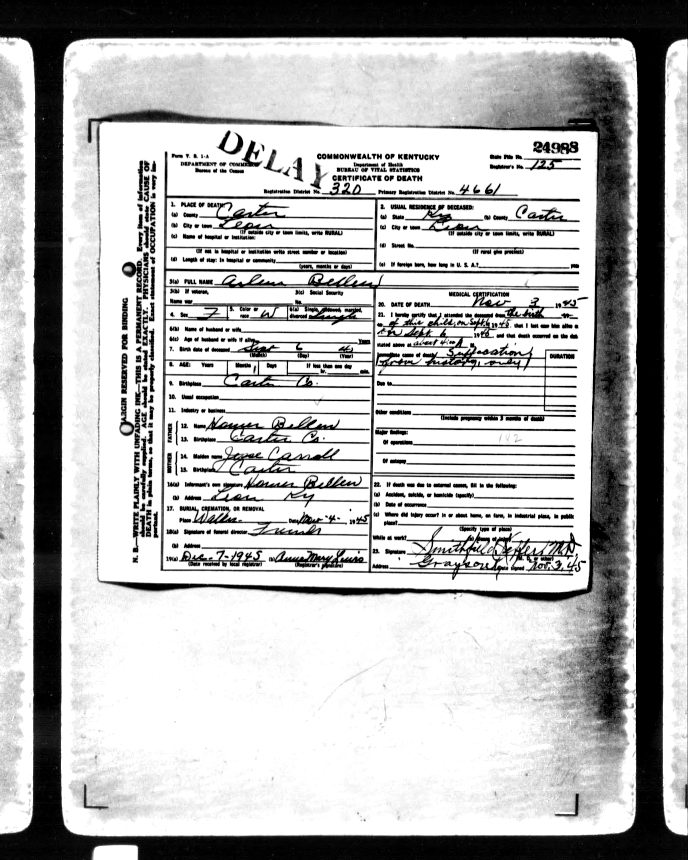 DELAY
24988
Form V. S. 1-A
DEPARTMENT OF COMMERCE
Bureau of the Census
COMMONWEALTH OF KENTUCKY
Department of Health
BUREAU OF VITAL STATISTICS
CERTIFICATE OF DEATH
State File No.
Registrar's No. 125
Registration District No. 320 Primary Registration District No. 4661
1. PLACE OF DEATH:
(a) County Carter
(b) City or town Leon
(If outside city or town limits, write RURAL)
(c) Name of hospital or institution:
(If not in hospital or institution write street number or location)
(d) Length of stay: In hospital or community
(years, months or days)
2. USUAL RESIDENCE OF DECEASED:
(a) State Ky (b) County Carter
(c) City or town Leon
(If outside city or town limits, write RURAL)
(d) Street No.
(If rural give precinct)
(e) If foreign born, how long in U. S. A.?
3(a) FULL NAME
3(b) If veteran,
Name war
3(c) Social Security
No.
4. Sex F 5. Color or race W 6(a) Single, widowed, married, divorced Single
6(b) Name of husband or wife
6(c) Age of husband or wife if alive Years
7. Birth date of deceased Sept 6 45
(Month) (Day) (Year)
8. AGE: Years Months Days If less than one day
hr. min.
9. Birthplace Carter Co.
10. Usual occupation
11. Industry or business
FATHER
12. Name Homer
13. Birthplace Carter Co.
MOTHER
14. Maiden name Carroll
15. Birthplace Carter
16(a) Informant's own signature Homer
(b) Address Leon Ky
17. BURIAL, CREMATION, OR REMOVAL
Place Date Nov-4- 1945
18(a) Signature of funeral director Friends
(b) Address
19(a) Dec-7-1945 (b) Anna Mary Lewis
(Date received by local registrar) (Registrar's signature)
MEDICAL CERTIFICATION
20. DATE OF DEATH Nov 3 1945
21. I hereby certify that I attended the deceased from the birth
of this child, on Sept 6 1945, that I last saw him alive
on Sept 6 1945 and that death occurred on the date
stated above at about 4:00 A M.
Immediate cause of death Suffocation
from history, only
DURATION
Due to
Other conditions
(Include pregnancy within 3 months of death)
Major findings:
Of operations
Of autopsy
22. If death was due to external causes, fill in the following:
(a) Accident, suicide, or homicide (specify)
(b) Date of occurrence
(c) Where did injury occur? In or about home, on farm, in industrial place, in public
place?
(Specify type of place)
While at work?
23. Signature M.D.
Address Grayson, Ky Date signed Nov. 3, 45
MARGIN RESERVED FOR BINDING
N. B.—WRITE PLAINLY WITH UNFADING INK—THIS IS A PERMANENT RECORD. Every item of information
should be carefully supplied. AGE should be stated EXACTLY. PHYSICIANS should state CAUSE OF
DEATH in plain terms, so that it may be properly classified. Exact statement of OCCUPATION is very im-
portant.